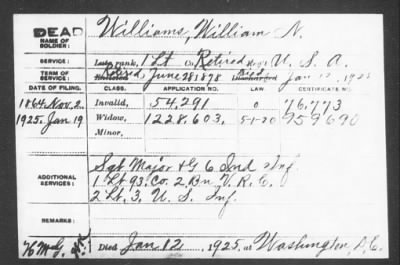 DEAD
NAME OF SOLDIER: Williams, William N.
SERVICE: Late rank, 1 Lt Co. Retired Reg't U. S. A.
TERM OF SERVICE: Enlisted Retired June 28 1878 Discharged Died Jan 12, 1925
DATE OF FILING. CLASS. APPLICATION NO. LAW CERTIFICATE NO.
1864 Nov. 2 Invalid, 54,291 0 76,773
1925, Jan 19 Widow, 1228,603, 5-1-20 959690
Minor,
ADDITIONAL SERVICES: Sgt Major & G 6 Ind Inf.
1 Lt 93, Co. 2, Bn V. R. C.
2 Lt. 3, U. S. Inf.
REMARKS:
Died Jan 12, 1925, at Washington, D.C.